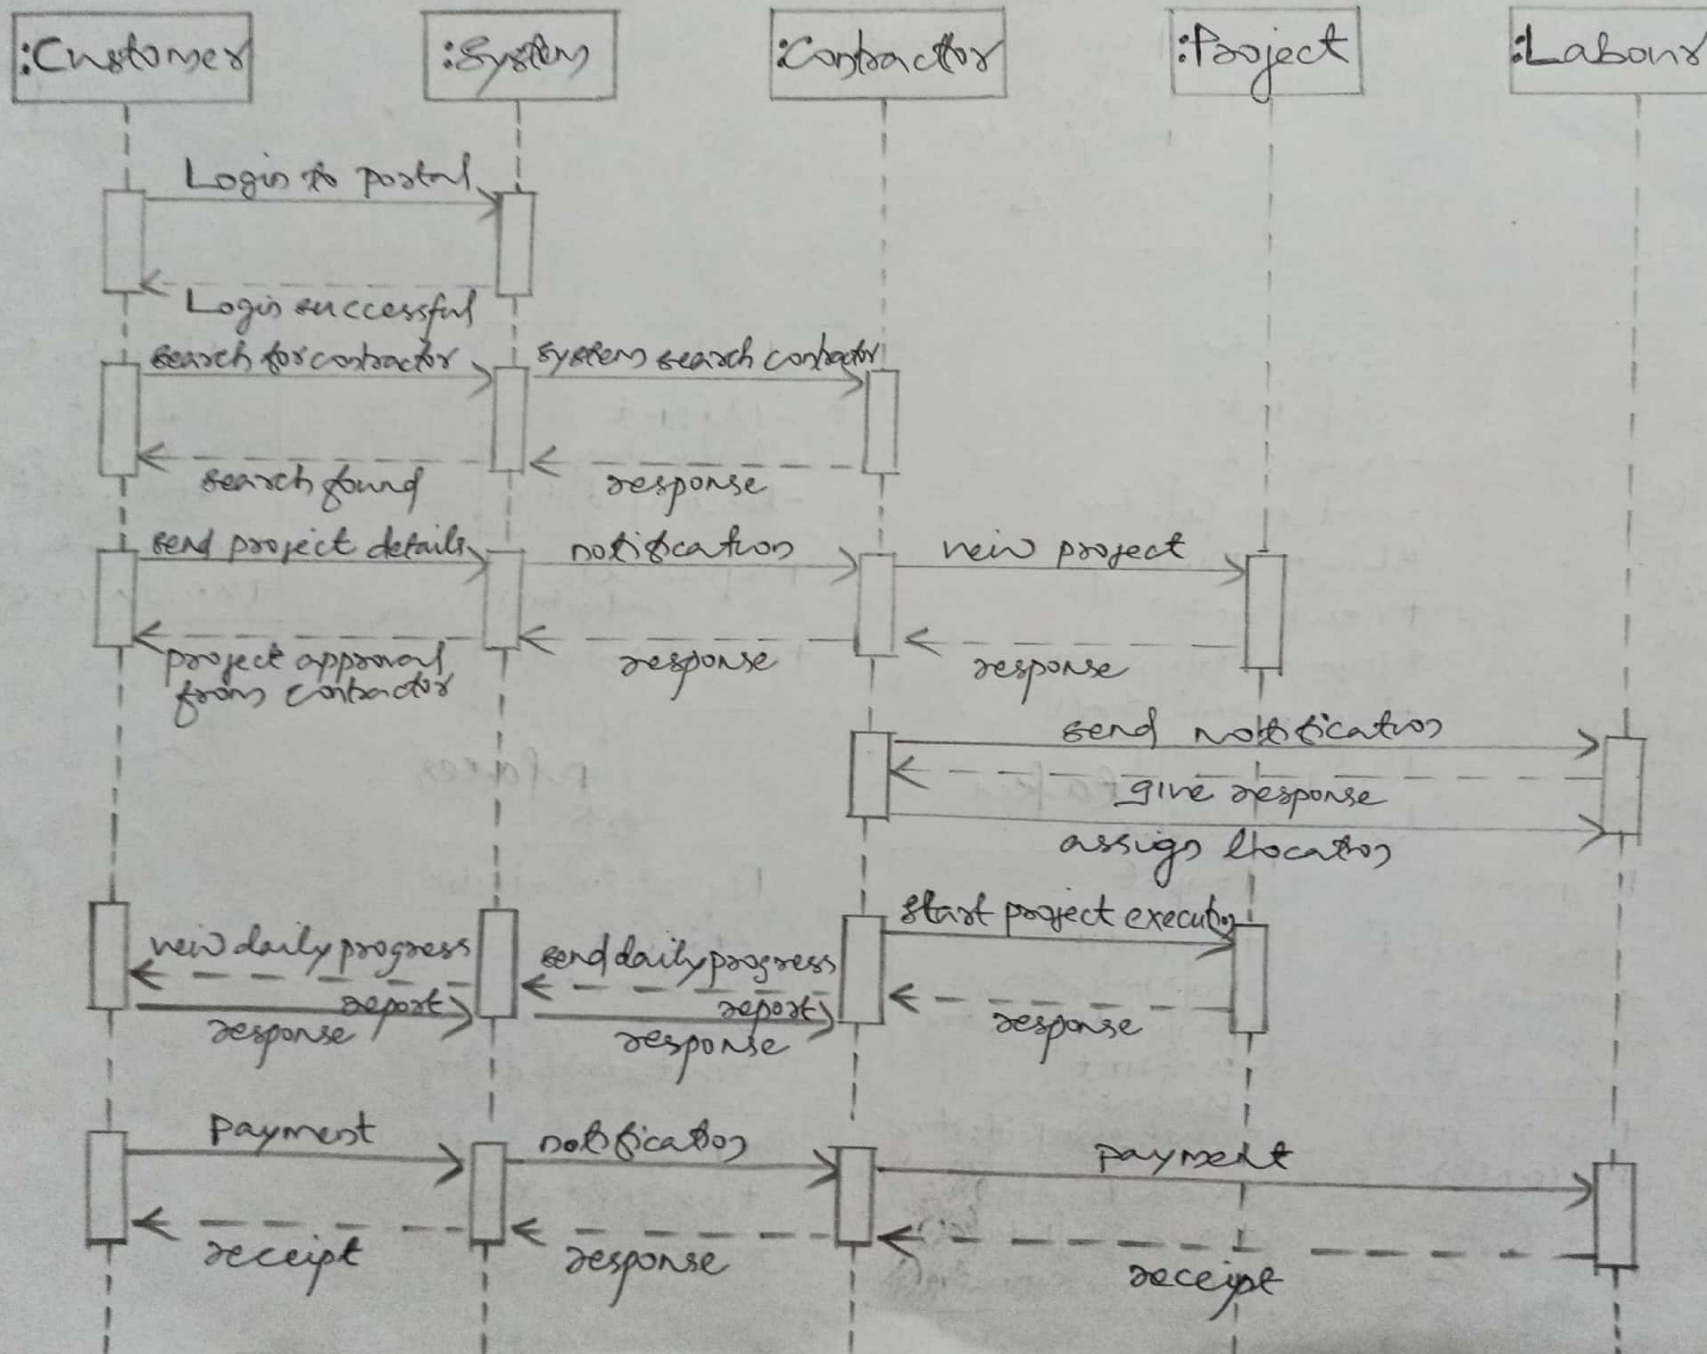 :Customer
:System
:Contractor
:Project
:Labour
Login to portal
Login successful
search for contractor
system search contractor
search found
response
send project details
notification
new project
project approval
from contractor
response
response
send notification
give response
assign
start project execution
new daily progress
report
send daily progress
report
response
response
response
Payment
notification
payment
receipt
response
receipt